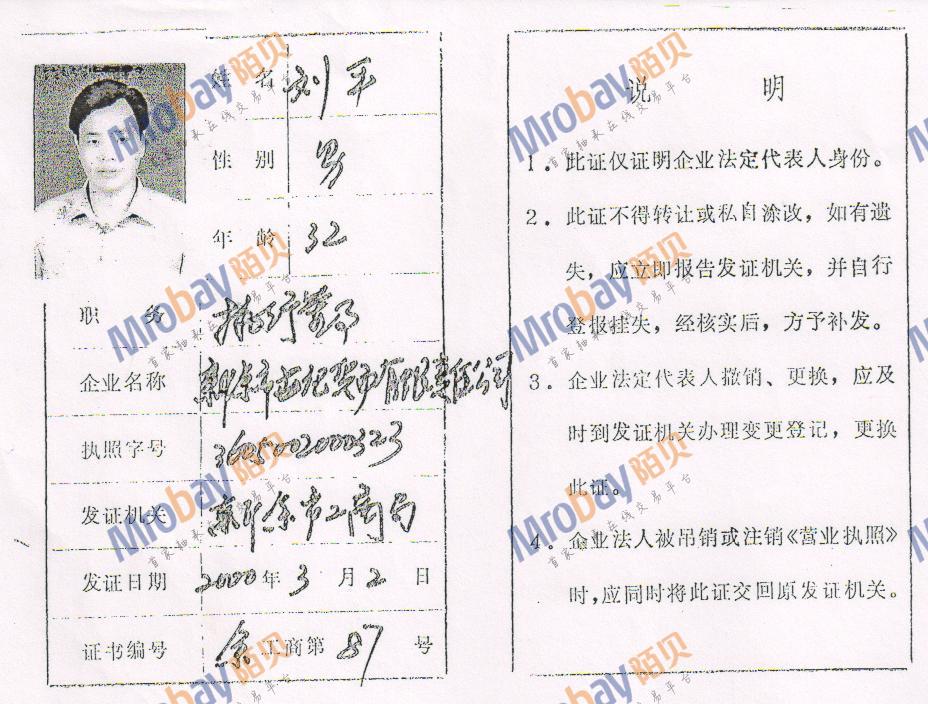 姓名 刘平
性别 男
年龄 32
职务 执行董事
企业名称 新余市 有限责任公司
执照字号 3605002000323
发证机关 新余市工商局
发证日期 2000年3月2日
证书编号 余工商第87号
说明
1. 此证仅证明企业法定代表人身份。
2. 此证不得转让或私自涂改，如有遗
失，应立即报告发证机关，并自行
登报挂失，经核实后，方予补发。
3. 企业法定代表人撤销、更换，应及
时到发证机关办理变更登记，更换
此证。
4. 企业法人被吊销或注销《营业执照》
时，应同时将此证交回原发证机关。
Mrobay陌贝
首家抽来在线交易平台